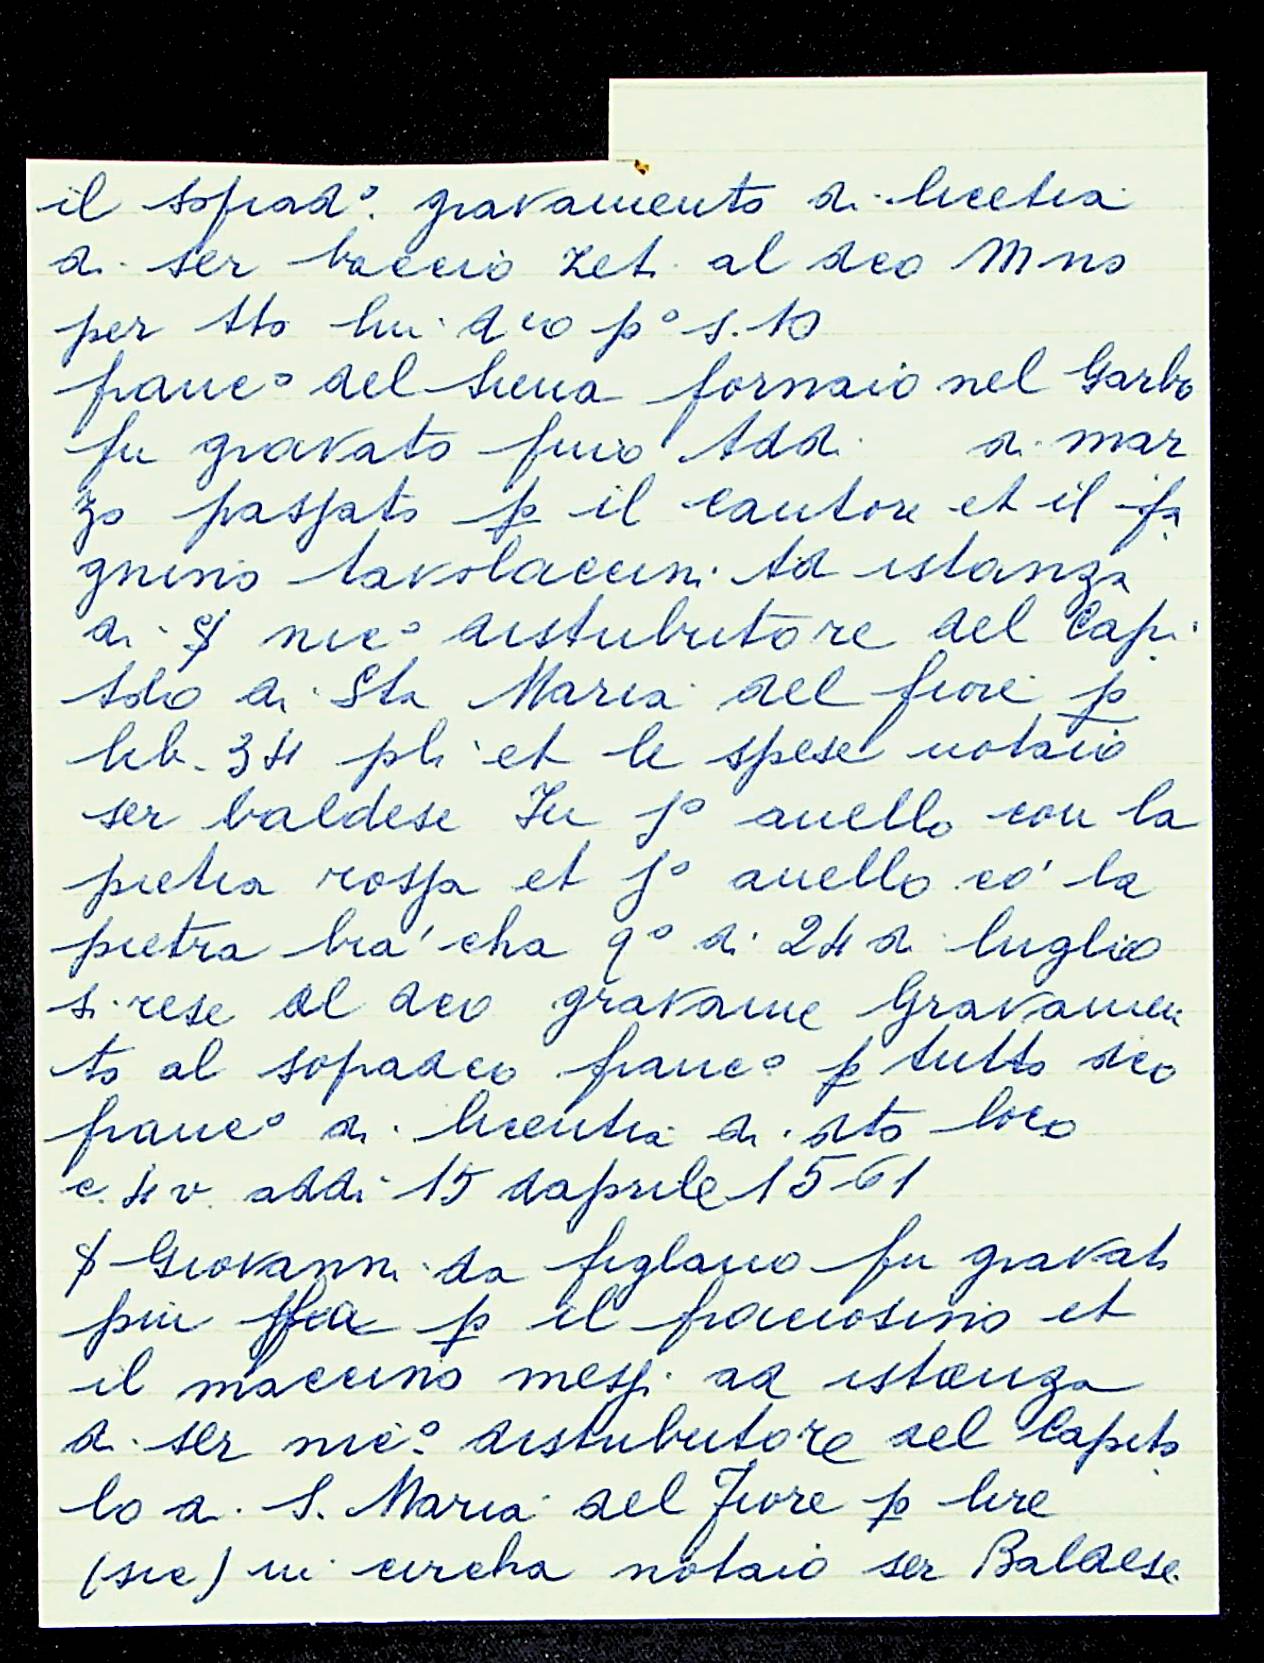 il soprad° gravamento di licetia
di ser baccio Zeti al dco Mno
per tto lui dco p° s. 10
franc° del Siena fornaio nel Garbo
fu gravato fino Addi di mar
zo passato p il cantore et il fa
gnino tavolaccini Ad istanza
di S nic° distributore del Capi
tolo di Sta Maria del fiore p
lib. 34 pli et le spese notaio
ser baldese In j° anello con la
pietra rossa et j° anello co' la
pietra bia'cha q° di 24 di luglio
si rese al dco gravame Gravamen
to al sopradco franc° p tutto dco
franc° di licentia di dto loco
c. 4 v. addi 15 daprile 1561
S Giovanni da figlano fu gravato
piu fa p il fracciosino et
il maccino messi ad istanza
di ser nic° distributore del Capito
lo di S. Maria del Fiore p lire
(sic) in circha notaio ser Baldese